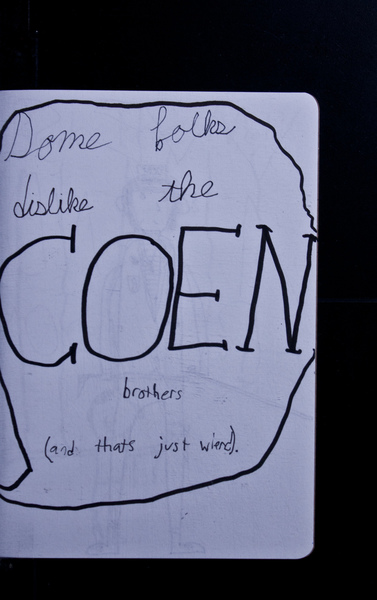 Some folks
dislike the
COEN
brothers
(and thats just wierd).